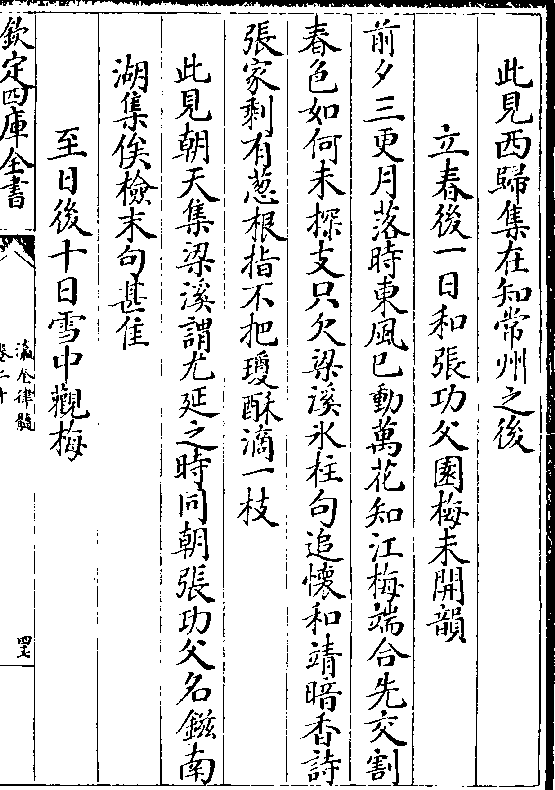 此見西歸集在知常州之後
立春後一日和張功父園梅未開韻
前夕三更月落時東風已動萬花知江梅端合先交割
春色如何未探支只欠梁溪氷柱句追懷和靖暗香詩
張家剩有葱根指不把瓊酥滴一枝
此見朝天集梁溪謂尤延之時同朝張功父名鎡南
湖集俟檢末句甚佳
至日後十日雪中觀梅
欽定四庫全書
瀛奎律髓
卷二十
四七